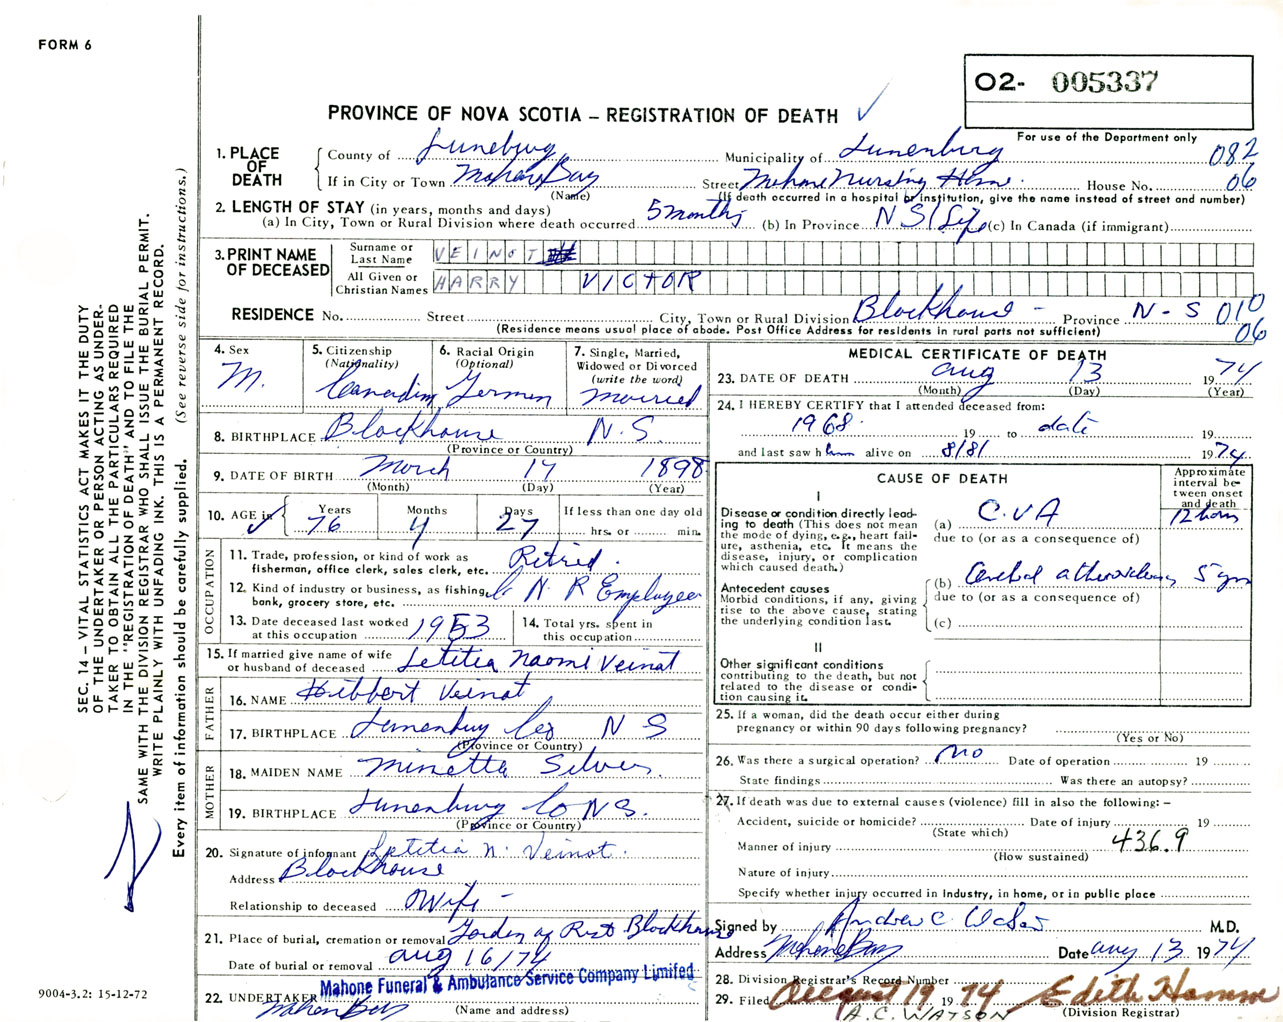 FORM 6
02- 005337
PROVINCE OF NOVA SCOTIA – REGISTRATION OF DEATH ✓
For use of the Department only
1. PLACE OF DEATH
County of Lunenburg Municipality of Lunenburg 082
If in City or Town Mahone Bay Street Mahone Nursing Home. House No. 06
(Name) (If death occurred in a hospital or institution, give the name instead of street and number)
2. LENGTH OF STAY (in years, months and days)
(a) In City, Town or Rural Division where death occurred 5 months (b) In Province NS Life (c) In Canada (if immigrant)
3. PRINT NAME OF DECEASED
Surname or Last Name VEINOT
All Given or Christian Names HARRY VICTOR
RESIDENCE No. Street City, Town or Rural Division Blockhouse - Province N-S 010
(Residence means usual place of abode. Post Office Address for residents in rural parts not sufficient) 06
4. Sex M.
5. Citizenship (Nationality) Canadian
6. Racial Origin (Optional) German
7. Single, Married, Widowed or Divorced (write the word) Married
8. BIRTHPLACE Blockhouse N.S.
(Province or Country)
9. DATE OF BIRTH March 17 1898
(Month) (Day) (Year)
10. AGE in Years 76 Months 4 Days 27 If less than one day old hrs. or min.
OCCUPATION
11. Trade, profession, or kind of work as fisherman, office clerk, sales clerk, etc. Retired
12. Kind of industry or business, as fishing, bank, grocery store, etc. C N R Employee
13. Date deceased last worked at this occupation 1953
14. Total yrs. spent in this occupation
15. If married give name of wife or husband of deceased Letitia Naomi Veinot
FATHER
16. NAME Hibbert Veinot
17. BIRTHPLACE Lunenburg Co N S
(Province or Country)
MOTHER
18. MAIDEN NAME Minetta Silver
19. BIRTHPLACE Lunenburg Co N S.
(Province or Country)
20. Signature of informant Letitia N. Veinot.
Address Blockhouse
Relationship to deceased Wife -
21. Place of burial, cremation or removal Garden of Rest Blockhouse
Date of burial or removal Aug 16/74
22. UNDERTAKER Mahone Funeral & Ambulance Service Company Limited
Mahone Bay (Name and address)
MEDICAL CERTIFICATE OF DEATH
23. DATE OF DEATH Aug 13 1974
(Month) (Day) (Year)
24. I HEREBY CERTIFY that I attended deceased from:
1968. 19 to date 19
and last saw h him alive on 8/8/ 1974
CAUSE OF DEATH
Approximate interval between onset and death
I
Disease or condition directly leading to death (This does not mean the mode of dying, e.g., heart failure, asthenia, etc. It means the disease, injury, or complication which caused death.)
(a) C.V.A 12 hours
due to (or as a consequence of)
Antecedent causes
Morbid conditions, if any, giving rise to the above cause, stating the underlying condition last.
(b) Cerebral 5 yrs
due to (or as a consequence of)
(c)
II
Other significant conditions contributing to the death, but not related to the disease or condition causing it.
25. If a woman, did the death occur either during pregnancy or within 90 days following pregnancy?
(Yes or No)
26. Was there a surgical operation? No Date of operation 19
State findings Was there an autopsy?
27. If death was due to external causes (violence) fill in also the following: –
Accident, suicide or homicide? Date of injury 19
(State which)
Manner of injury 436.9
(How sustained)
Nature of injury
Specify whether injury occurred in industry, in home, or in public place
Signed by Andrew C. Watson M.D.
Address Mahone Bay Date Aug 13 1974
28. Division Registrar's Record Number
29. Filed August 19 1974 Edith Hamm
A.C. WATSON (Division Registrar)
SEC. 14 – VITAL STATISTICS ACT MAKES IT THE DUTY
OF THE UNDERTAKER OR PERSON ACTING AS UNDER-
TAKER TO OBTAIN ALL THE PARTICULARS REQUIRED
IN THE "REGISTRATION OF DEATH" AND TO FILE THE
SAME WITH THE DIVISION REGISTRAR WHO SHALL ISSUE THE BURIAL PERMIT.
WRITE PLAINLY WITH UNFADING INK. THIS IS A PERMANENT RECORD.
Every item of information should be carefully supplied. (See reverse side for instructions.)
9004-3.2: 15-12-72